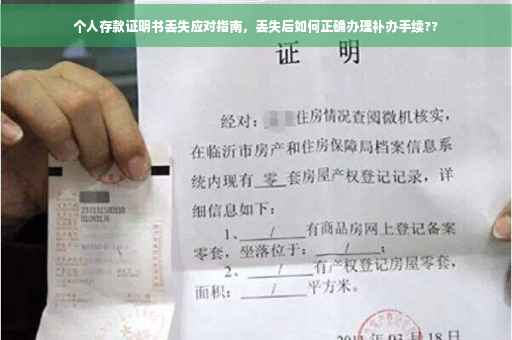 个人存款证明书丢失应对指南，丢失后如何正确办理补办手续??
证 明
经对：住房情况查阅微机核实，
在临沂市房产和住房保障局档案信息系
统内现有 零 套房屋产权登记记录，详
细信息如下：
1、 / 有商品房网上登记备案
零套，坐落位于： / ；
2、 / 有产权登记房屋零套，
面积： / 平方米。
03月18日